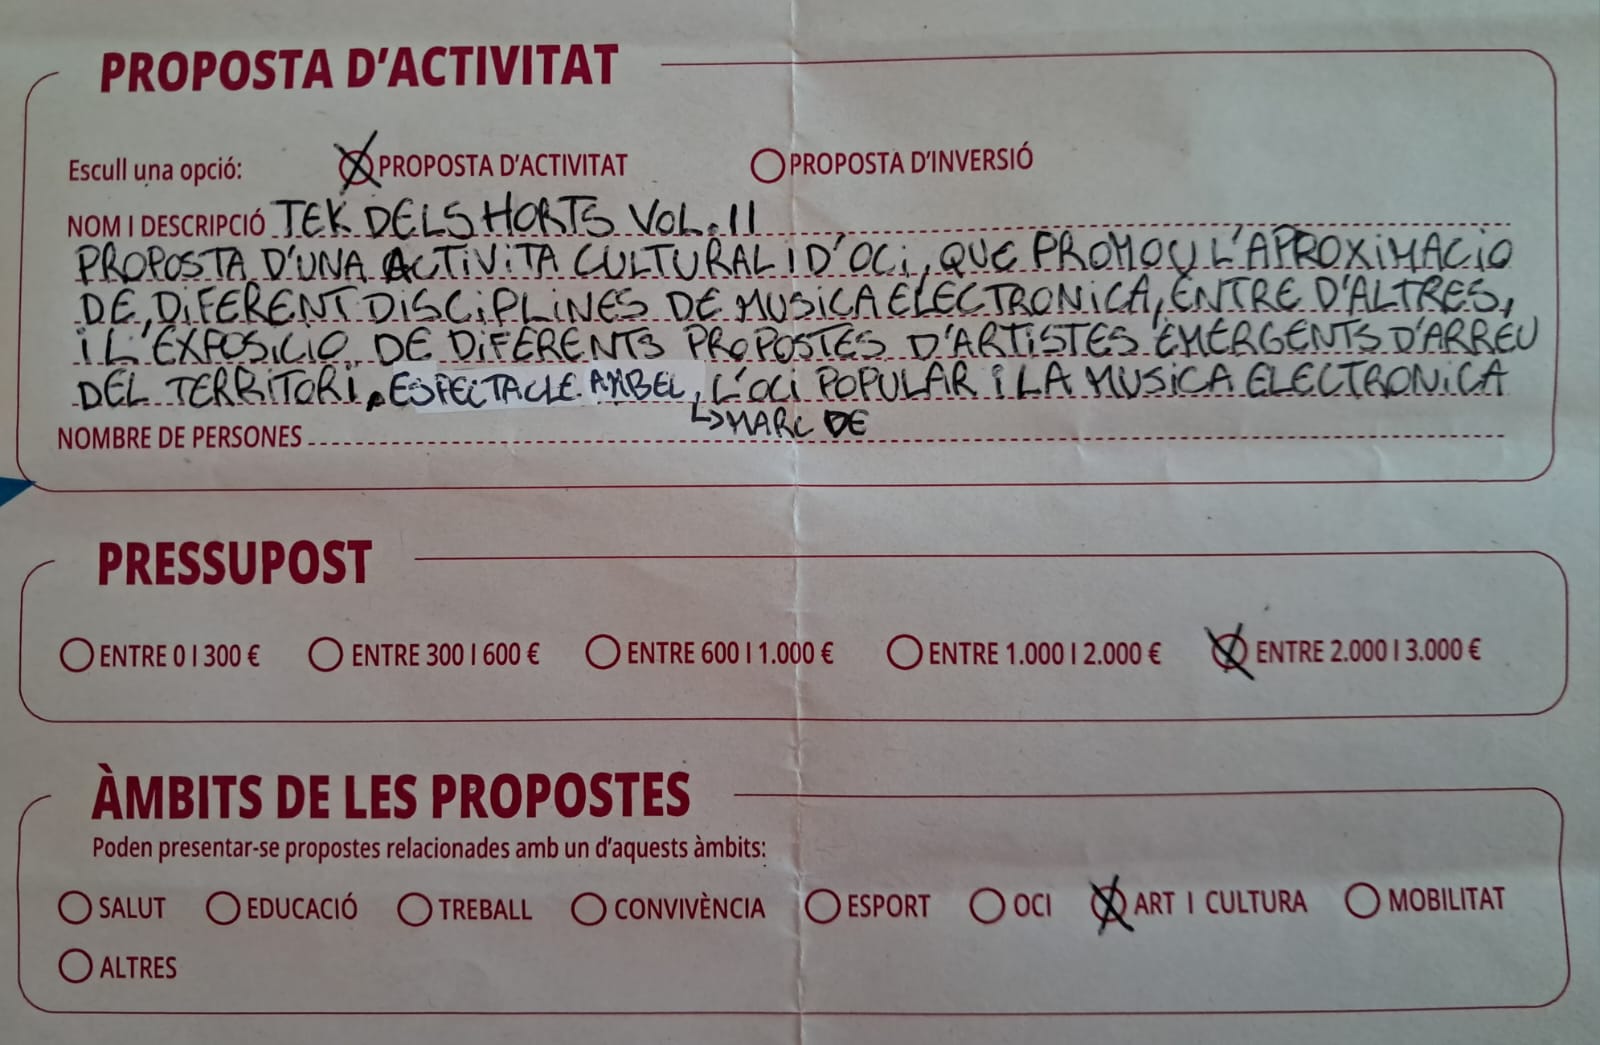 PROPOSTA D'ACTIVITAT
Escull una opció: PROPOSTA D'ACTIVITAT PROPOSTA D'INVERSIÓ
NOM I DESCRIPCIÓ TEK DELS HORTS VOL. II
PROPOSTA D'UNA ACTIVITA CULTURAL I D'OCI, QUE PROMOU L'APROXIMACIO
DE, DIFERENT DISCIPLINES DE MUSICA ELECTRONICA, ENTRE D'ALTRES,
I L'EXPOSICIO DE DIFERENTS PROPOSTES D'ARTISTES EMERGENTS D'ARREU
DEL TERRITORI. ESPECTACLE AMBEL, L'OCI POPULAR I LA MUSICA ELECTRONICA
↳MARC DE
NOMBRE DE PERSONES
PRESSUPOST
ENTRE 0 I 300 € ENTRE 300 I 600 € ENTRE 600 I 1.000 € ENTRE 1.000 I 2.000 € ENTRE 2.000 I 3.000 €
ÀMBITS DE LES PROPOSTES
Poden presentar-se propostes relacionades amb un d'aquests àmbits:
SALUT EDUCACIÓ TREBALL CONVIVÈNCIA ESPORT OCI ART I CULTURA MOBILITAT
ALTRES